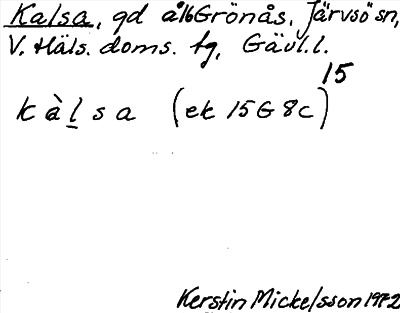 Kalsa, gd å 1/6 Grönås, Järvsö sn,
V. Häls. doms. fg, Gävl. l.
15
kàlsa (ek 15G8c)
Kerstin Mickelsson 1972